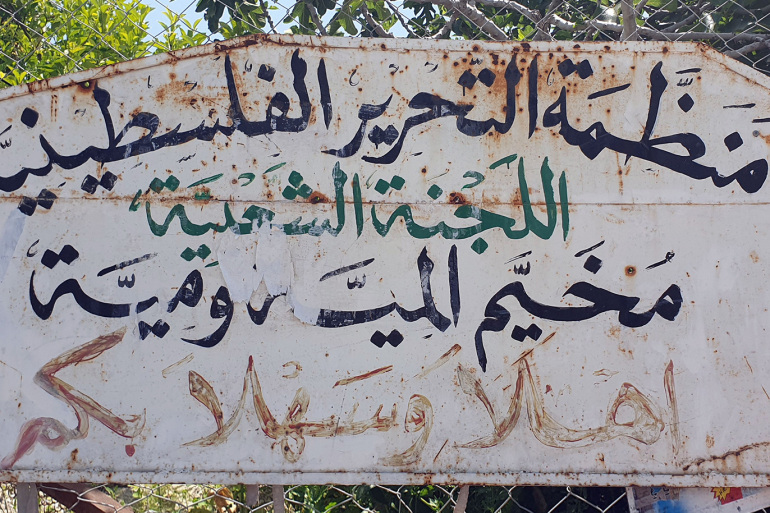 منظمة التحرير الفلسطينية
اللجنة الشعبية
مُخيّم الميّة وميّة
اهلا وسهلا بكم